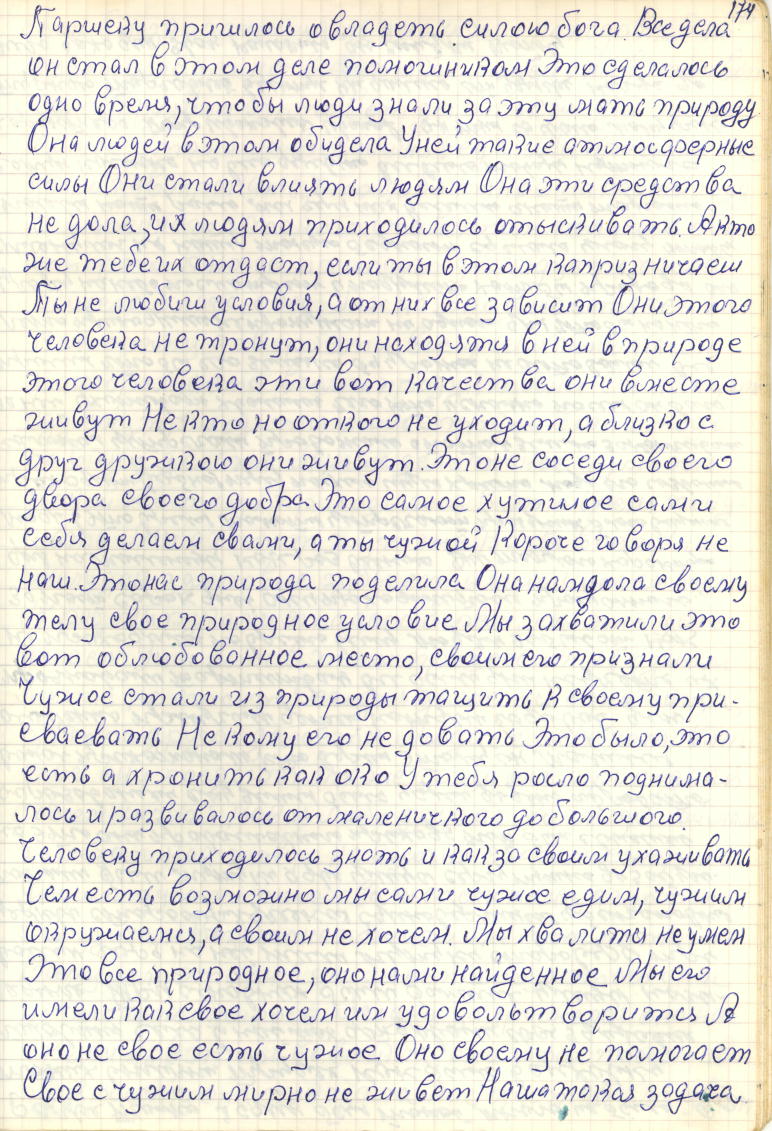 174
Паршеку пришлось овладеть силою бога. Все дела
он стал в этом деле помошником Это сделалось
одно время, чтобы люди знали за эту мать природу
Она людей в этом обидела У ней такие атмосферные
силы Они стали влиять людям Она эти средства
не дола, их людям приходилось отыскивать. А кто
же тебе их отдаст, если ты в этом капризничаеш
Ты не любиш условия, а от них все зависит Они этого
человека не тронут, они находятся в ней в природе
этого человека эти вот качества они вместе
живут Не кто но от кого не уходит, а близко с
друг дружкою они живут. Это не соседи своего
двора своего добра Это самое хужилое сами
себя делаем свами, а ты чужой Короче говоря не
наш. Это нас природа поделила Она нам дола своему
телу свое природное условие Мы захватили это
вот облюбованное место, своим его признали
Чужое стали из природы тащить к своему при-
сваевать Не кому его не довать Это было, это
есть а хронить как око У тебя росло поднима-
лось и развивалось от маленичкого до большого.
Человеку приходилось зноть и как за своим ухаживать
Чем есть возможно мы сами чужое едим, чужим
окружаемся, а своим не хочем. Мы хвалится не умем
Это все природное, оно нами найденное Мы его
имели как свое хочем им удовольтворится А
оно не свое есть чужое Оно своему не помогает
Свое с чужим мирно не живет Наша токая задача